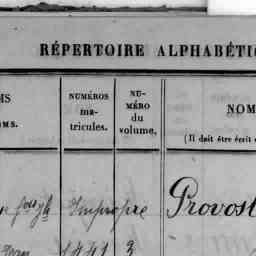 RÉPERTOIRE ALPHABÉTI
MS
OMS.
NUMÉROS
ma-
tricules.
NU-
MÉRO
du
volume.
NOM
(Il doit être écrit
Impropre
Provost
1441 3